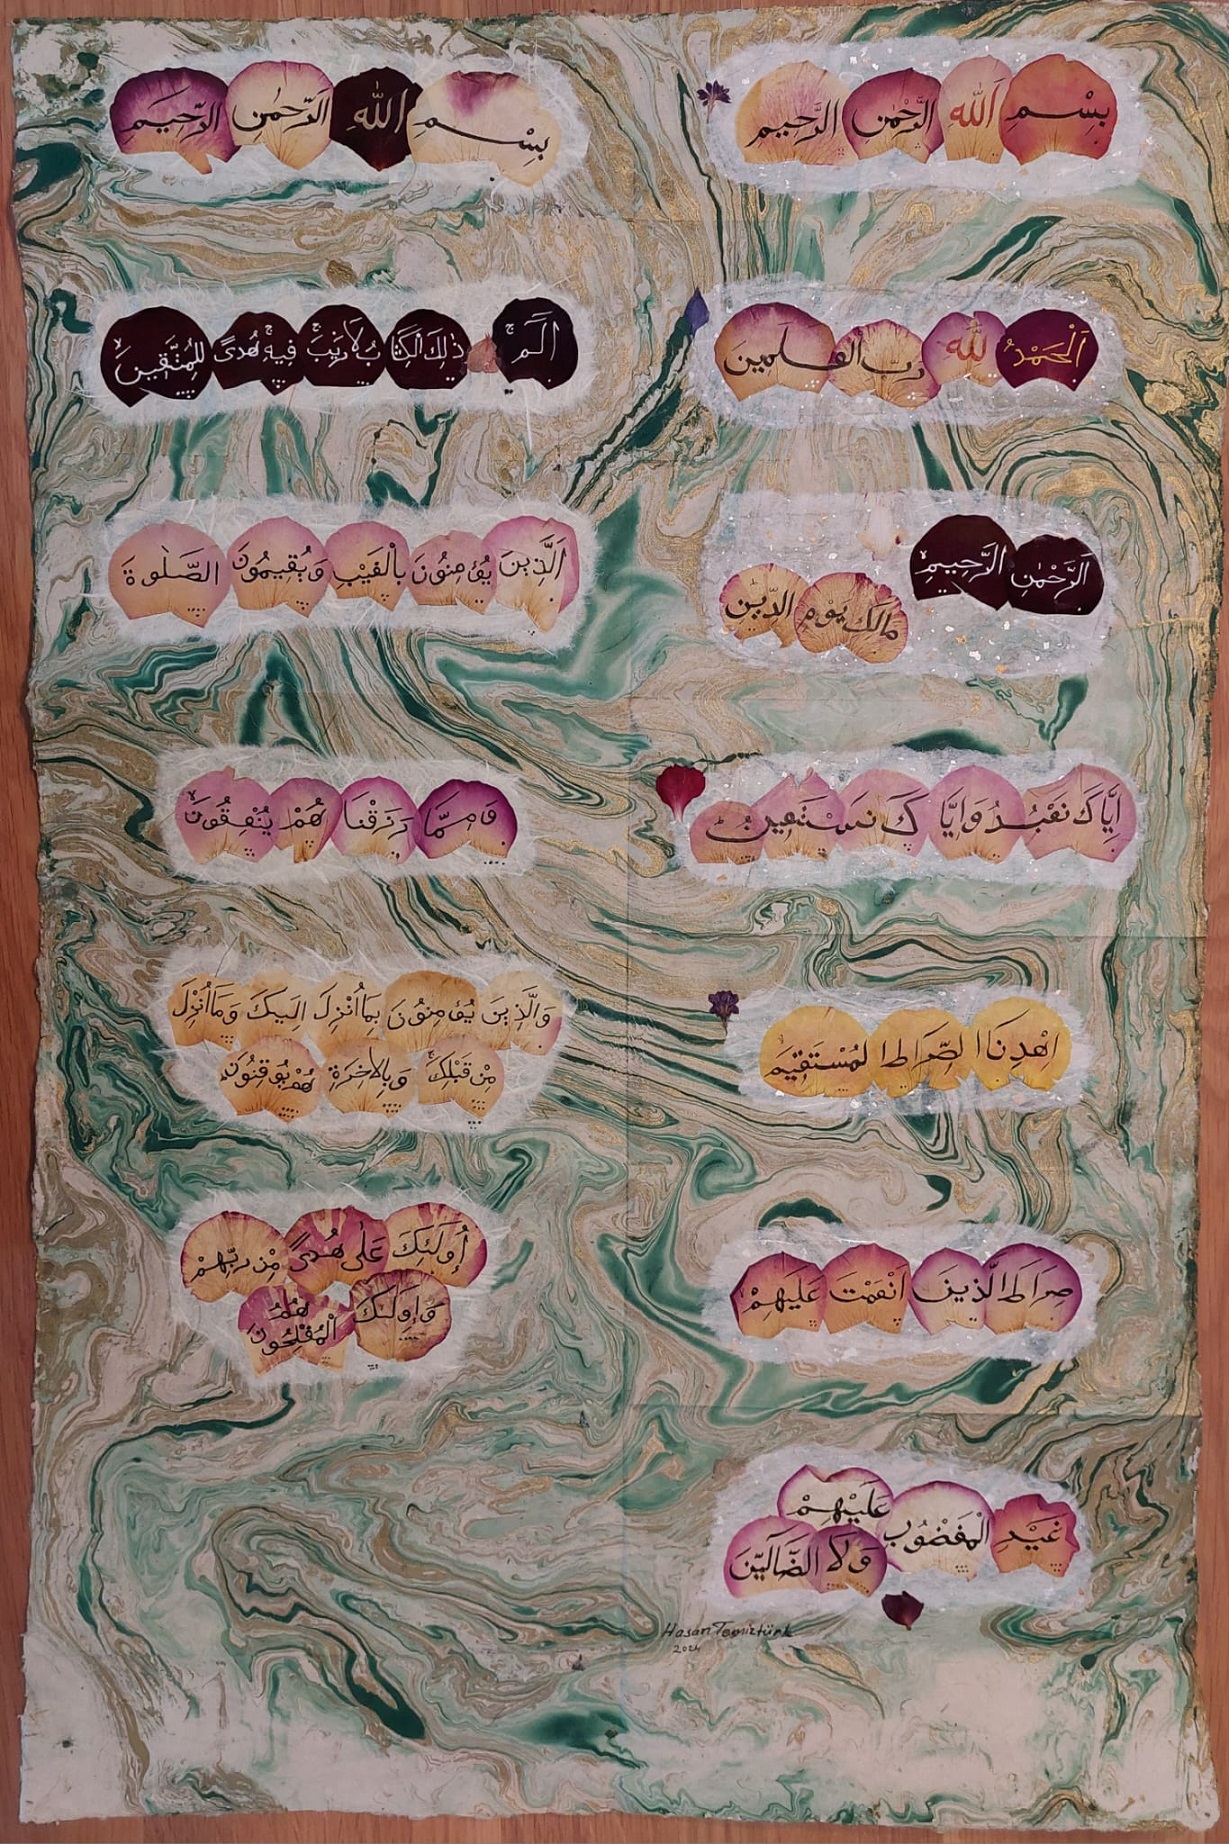 بِسْمِ اللهِ الرَّحْمٰنِ الرَّحِيمِ
اَلْحَمْدُ لِلّٰهِ رَبِّ الْعٰلَمِينَ
اَلرَّحْمٰنِ الرَّحِيمِ
مَالِكِ يَوْمِ الدِّينِ
اِيَّاكَ نَعْبُدُ وَاِيَّاكَ نَسْتَعِينُ
اِهْدِنَا الصِّرَاطَ الْمُسْتَقِيمَ
صِرَاطَ الَّذِينَ اَنْعَمْتَ عَلَيْهِمْ
غَيْرِ الْمَغْضُوبِ عَلَيْهِمْ
وَلَا الضَّالِّينَ
Hasan Temiztürk
2024
بِسْمِ اللهِ الرَّحْمٰنِ الرَّحِيمِ
الٓمٓ ذٰلِكَ الْكِتَابُ لَارَيْبَ فِيهِ هُدًى لِلْمُتَّقِينَ
اَلَّذِينَ يُؤْمِنُونَ بِالْغَيْبِ وَيُقِيمُونَ الصَّلٰوةَ
وَمِمَّا رَزَقْنَا هُمْ يُنْفِقُونَ
وَالَّذِينَ يُؤْمِنُونَ بِمَا اُنْزِلَ اِلَيْكَ وَمَا اُنْزِلَ
مِنْ قَبْلِكَ وَبِالْاٰخِرَةِ هُمْ يُوقِنُونَ
اُولٰئِكَ عَلٰى هُدًى مِنْ رَبِّهِمْ
وَاُولٰئِكَ هُمُ الْمُفْلِحُونَ